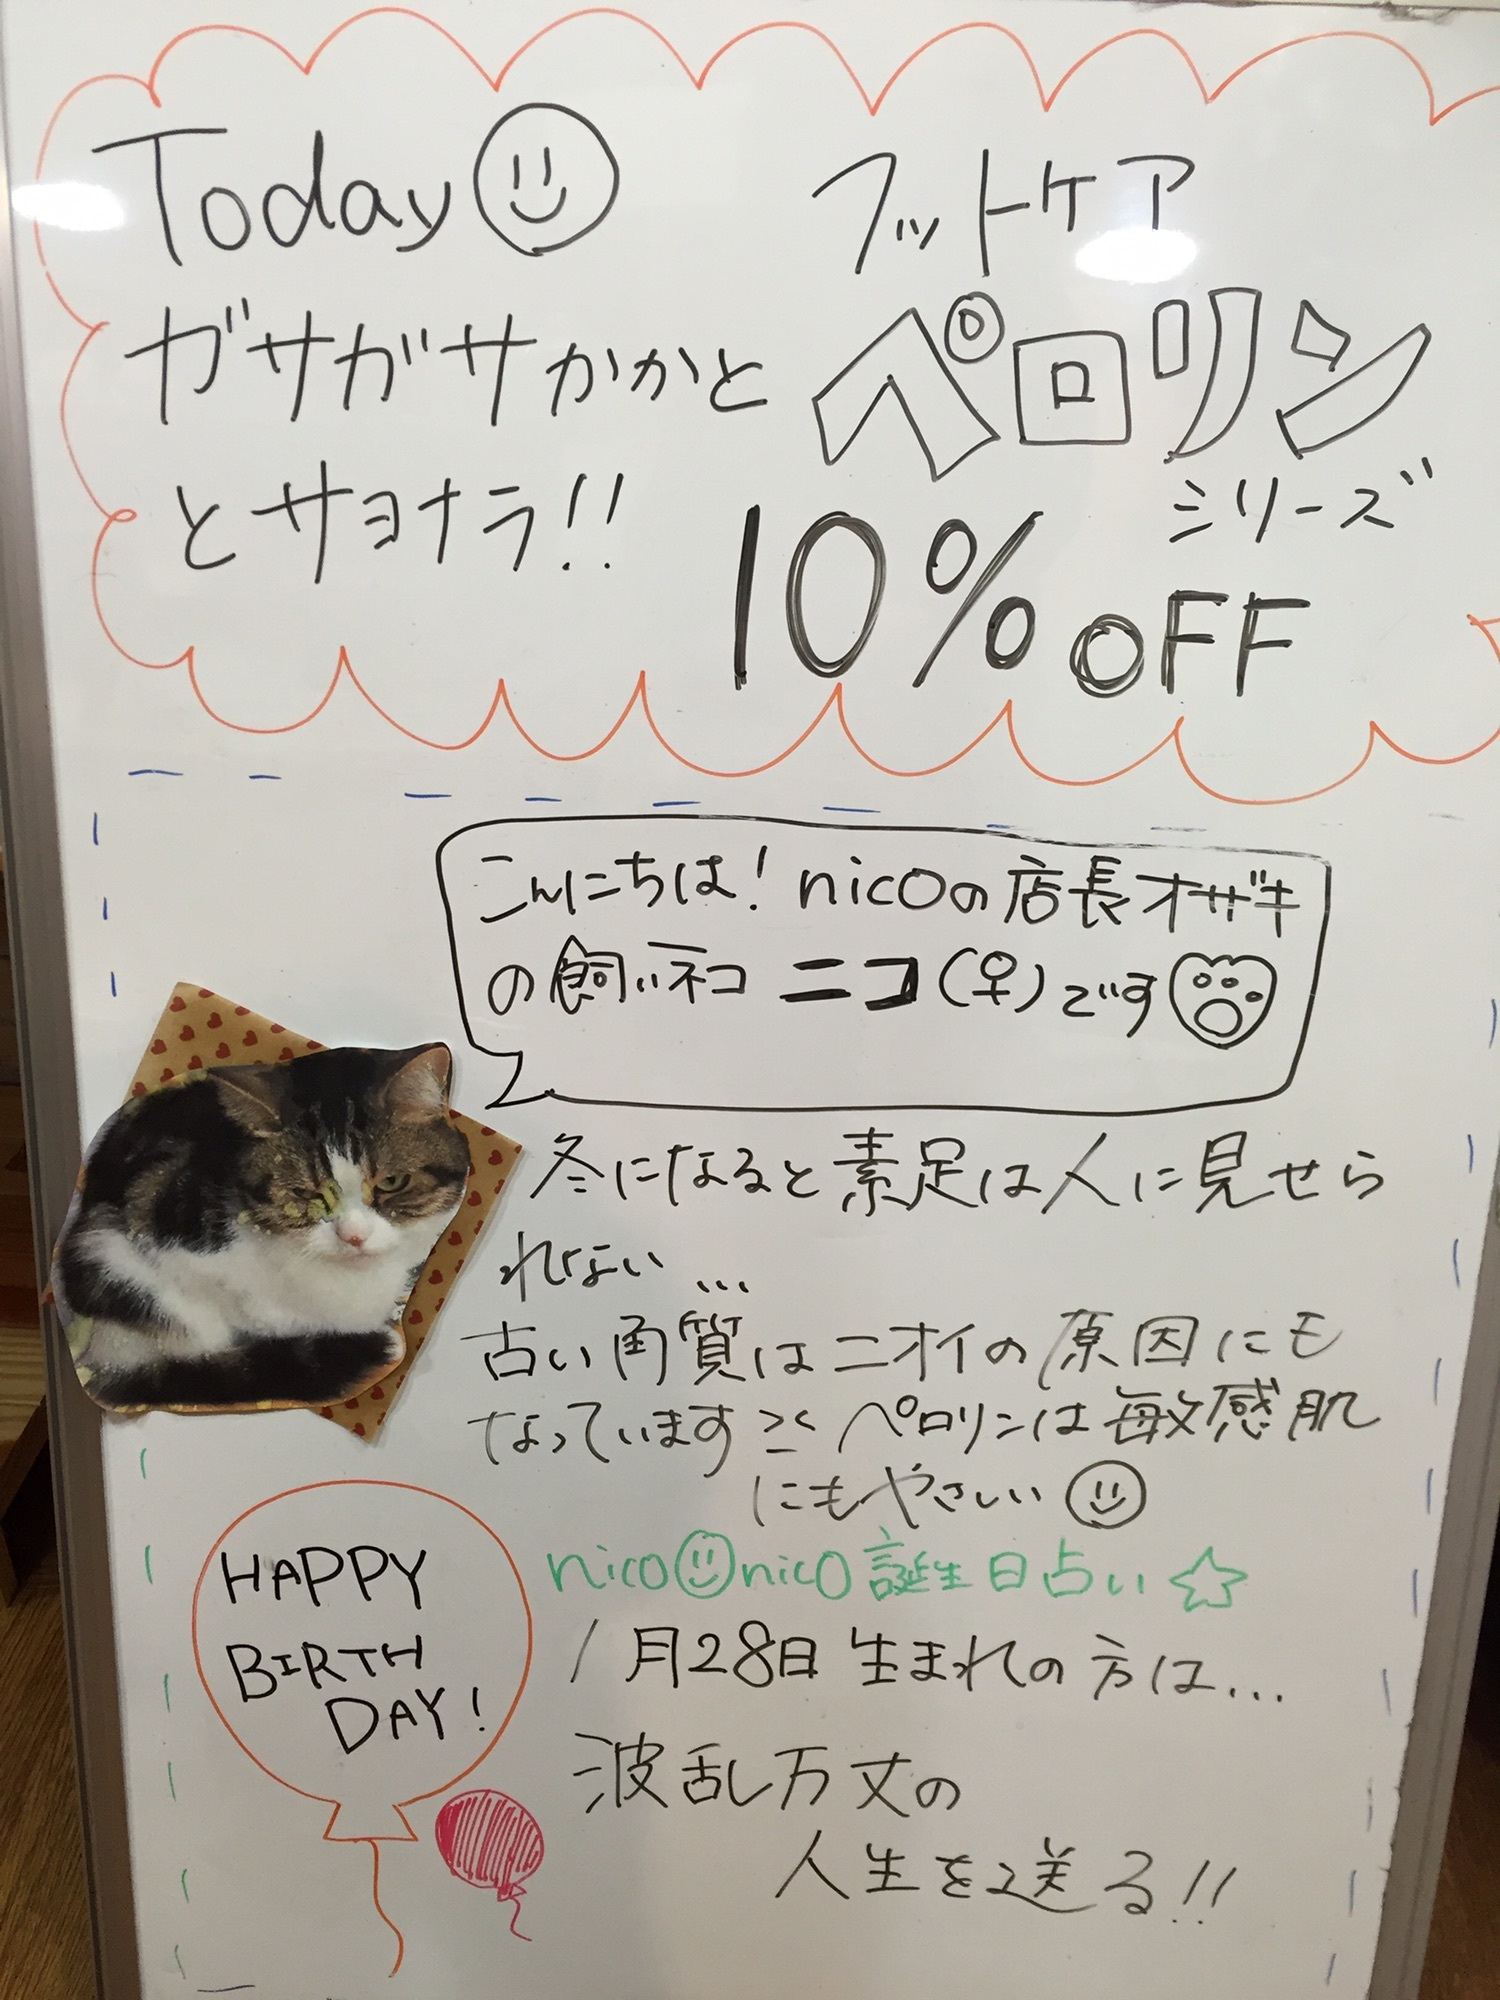 Today
ガサガサかかと
とサヨナラ!!
フットケア
ペロリン
シリーズ
10% OFF
こんにちは! nicoの店長オザキ
の飼いネコ ニコ(♀)です
冬になると素足は人に見せら
れない...
古い角質はニオイの原因にも
なっています ペロリンは敏感肌
にもやさしい
HAPPY
BIRTH
DAY!
nico nico 誕生日占い☆
1月28日 生まれの方は...
波乱万丈の
人生を送る!!